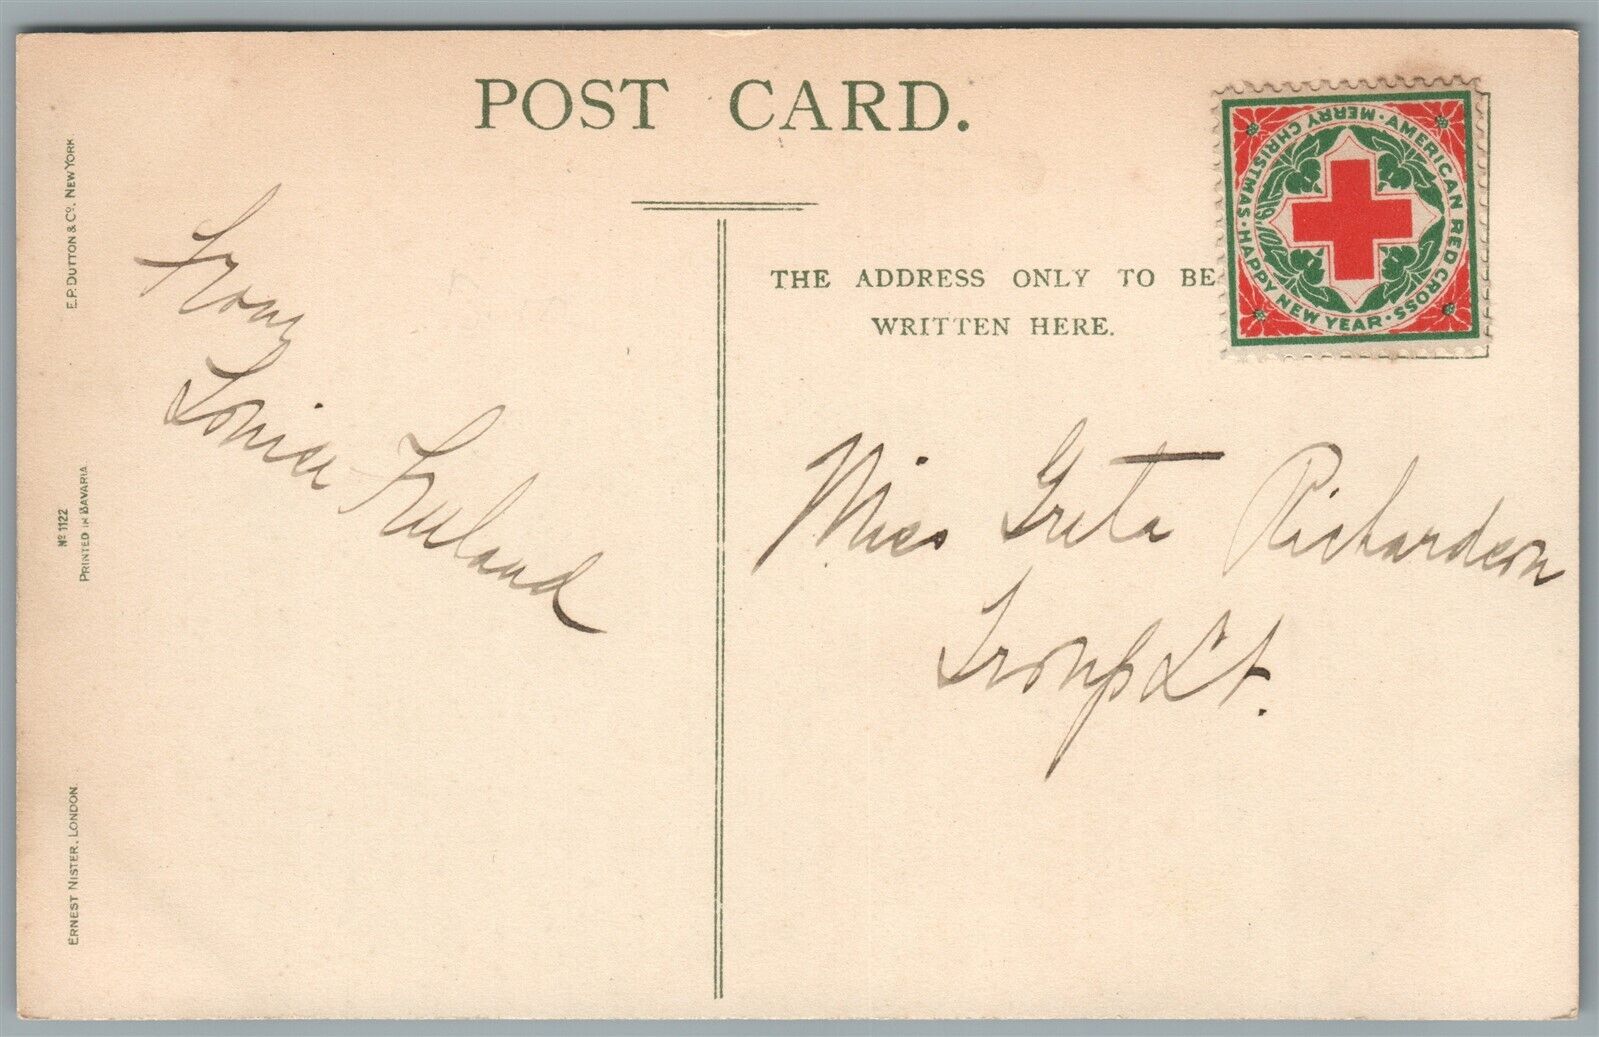 POST CARD.
THE ADDRESS ONLY TO BE
WRITTEN HERE.
AMERICAN RED CROSS · HAPPY NEW YEAR · MERRY CHRISTMAS ·
From
Louise Freeland
Miss Greta Richardson
Troup St.
E.P. DUTTON & Co. NEW YORK.
No 1122
PRINTED IN BAVARIA.
ERNEST NISTER, LONDON.